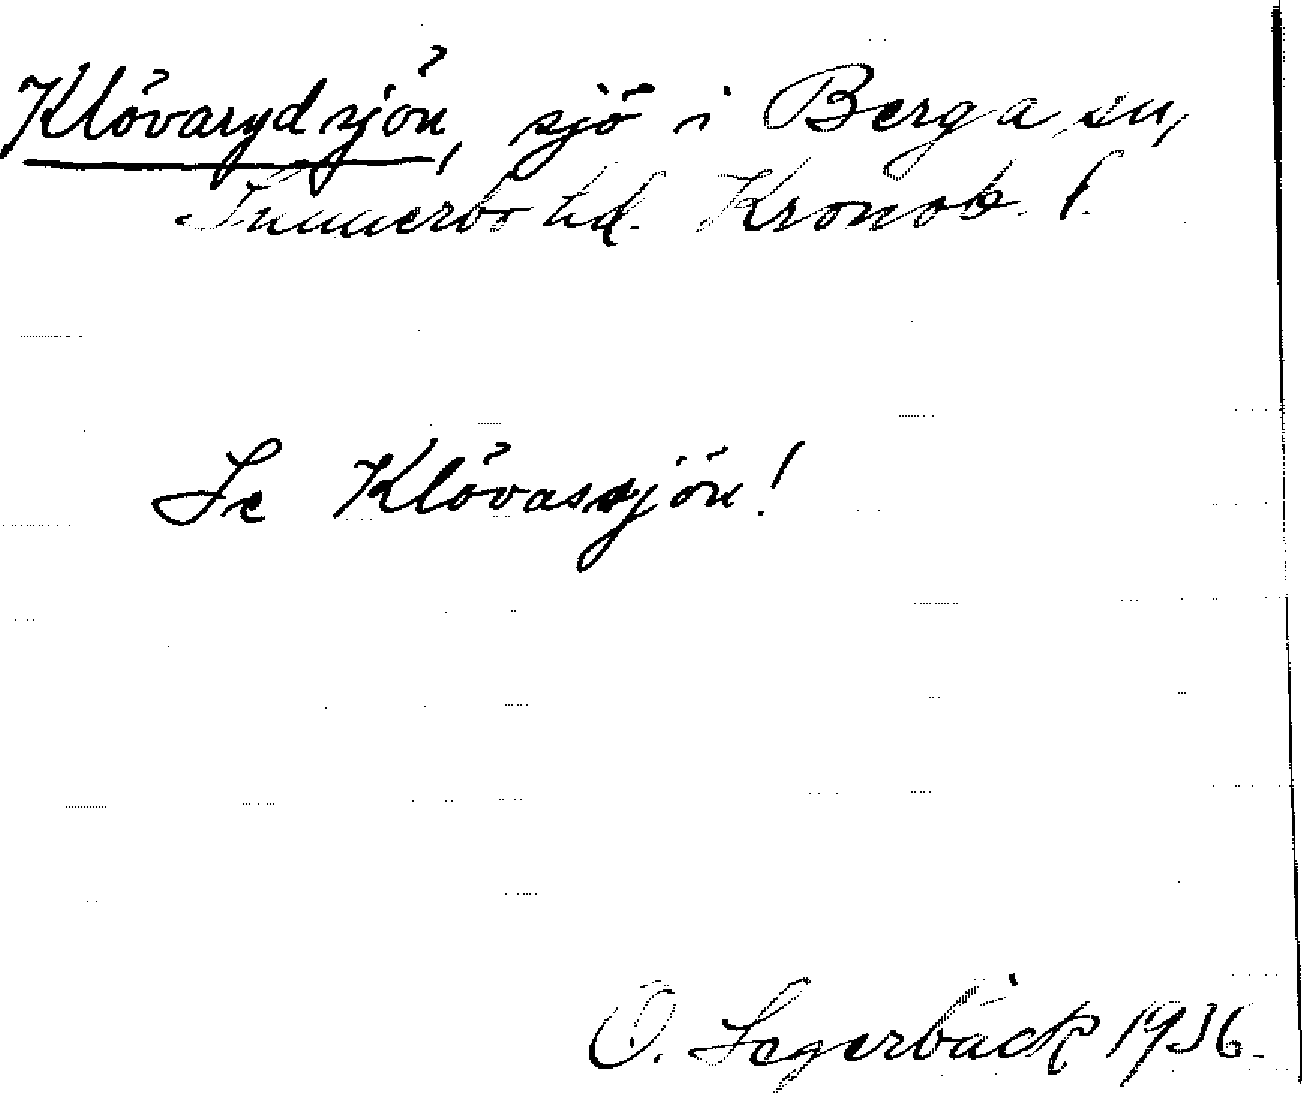 Klövarydsjön, sjö i Berga sn,
Sunnerbo hd. Kronob. l.
Se Klövassjön!
O. Segerbäck 1936.